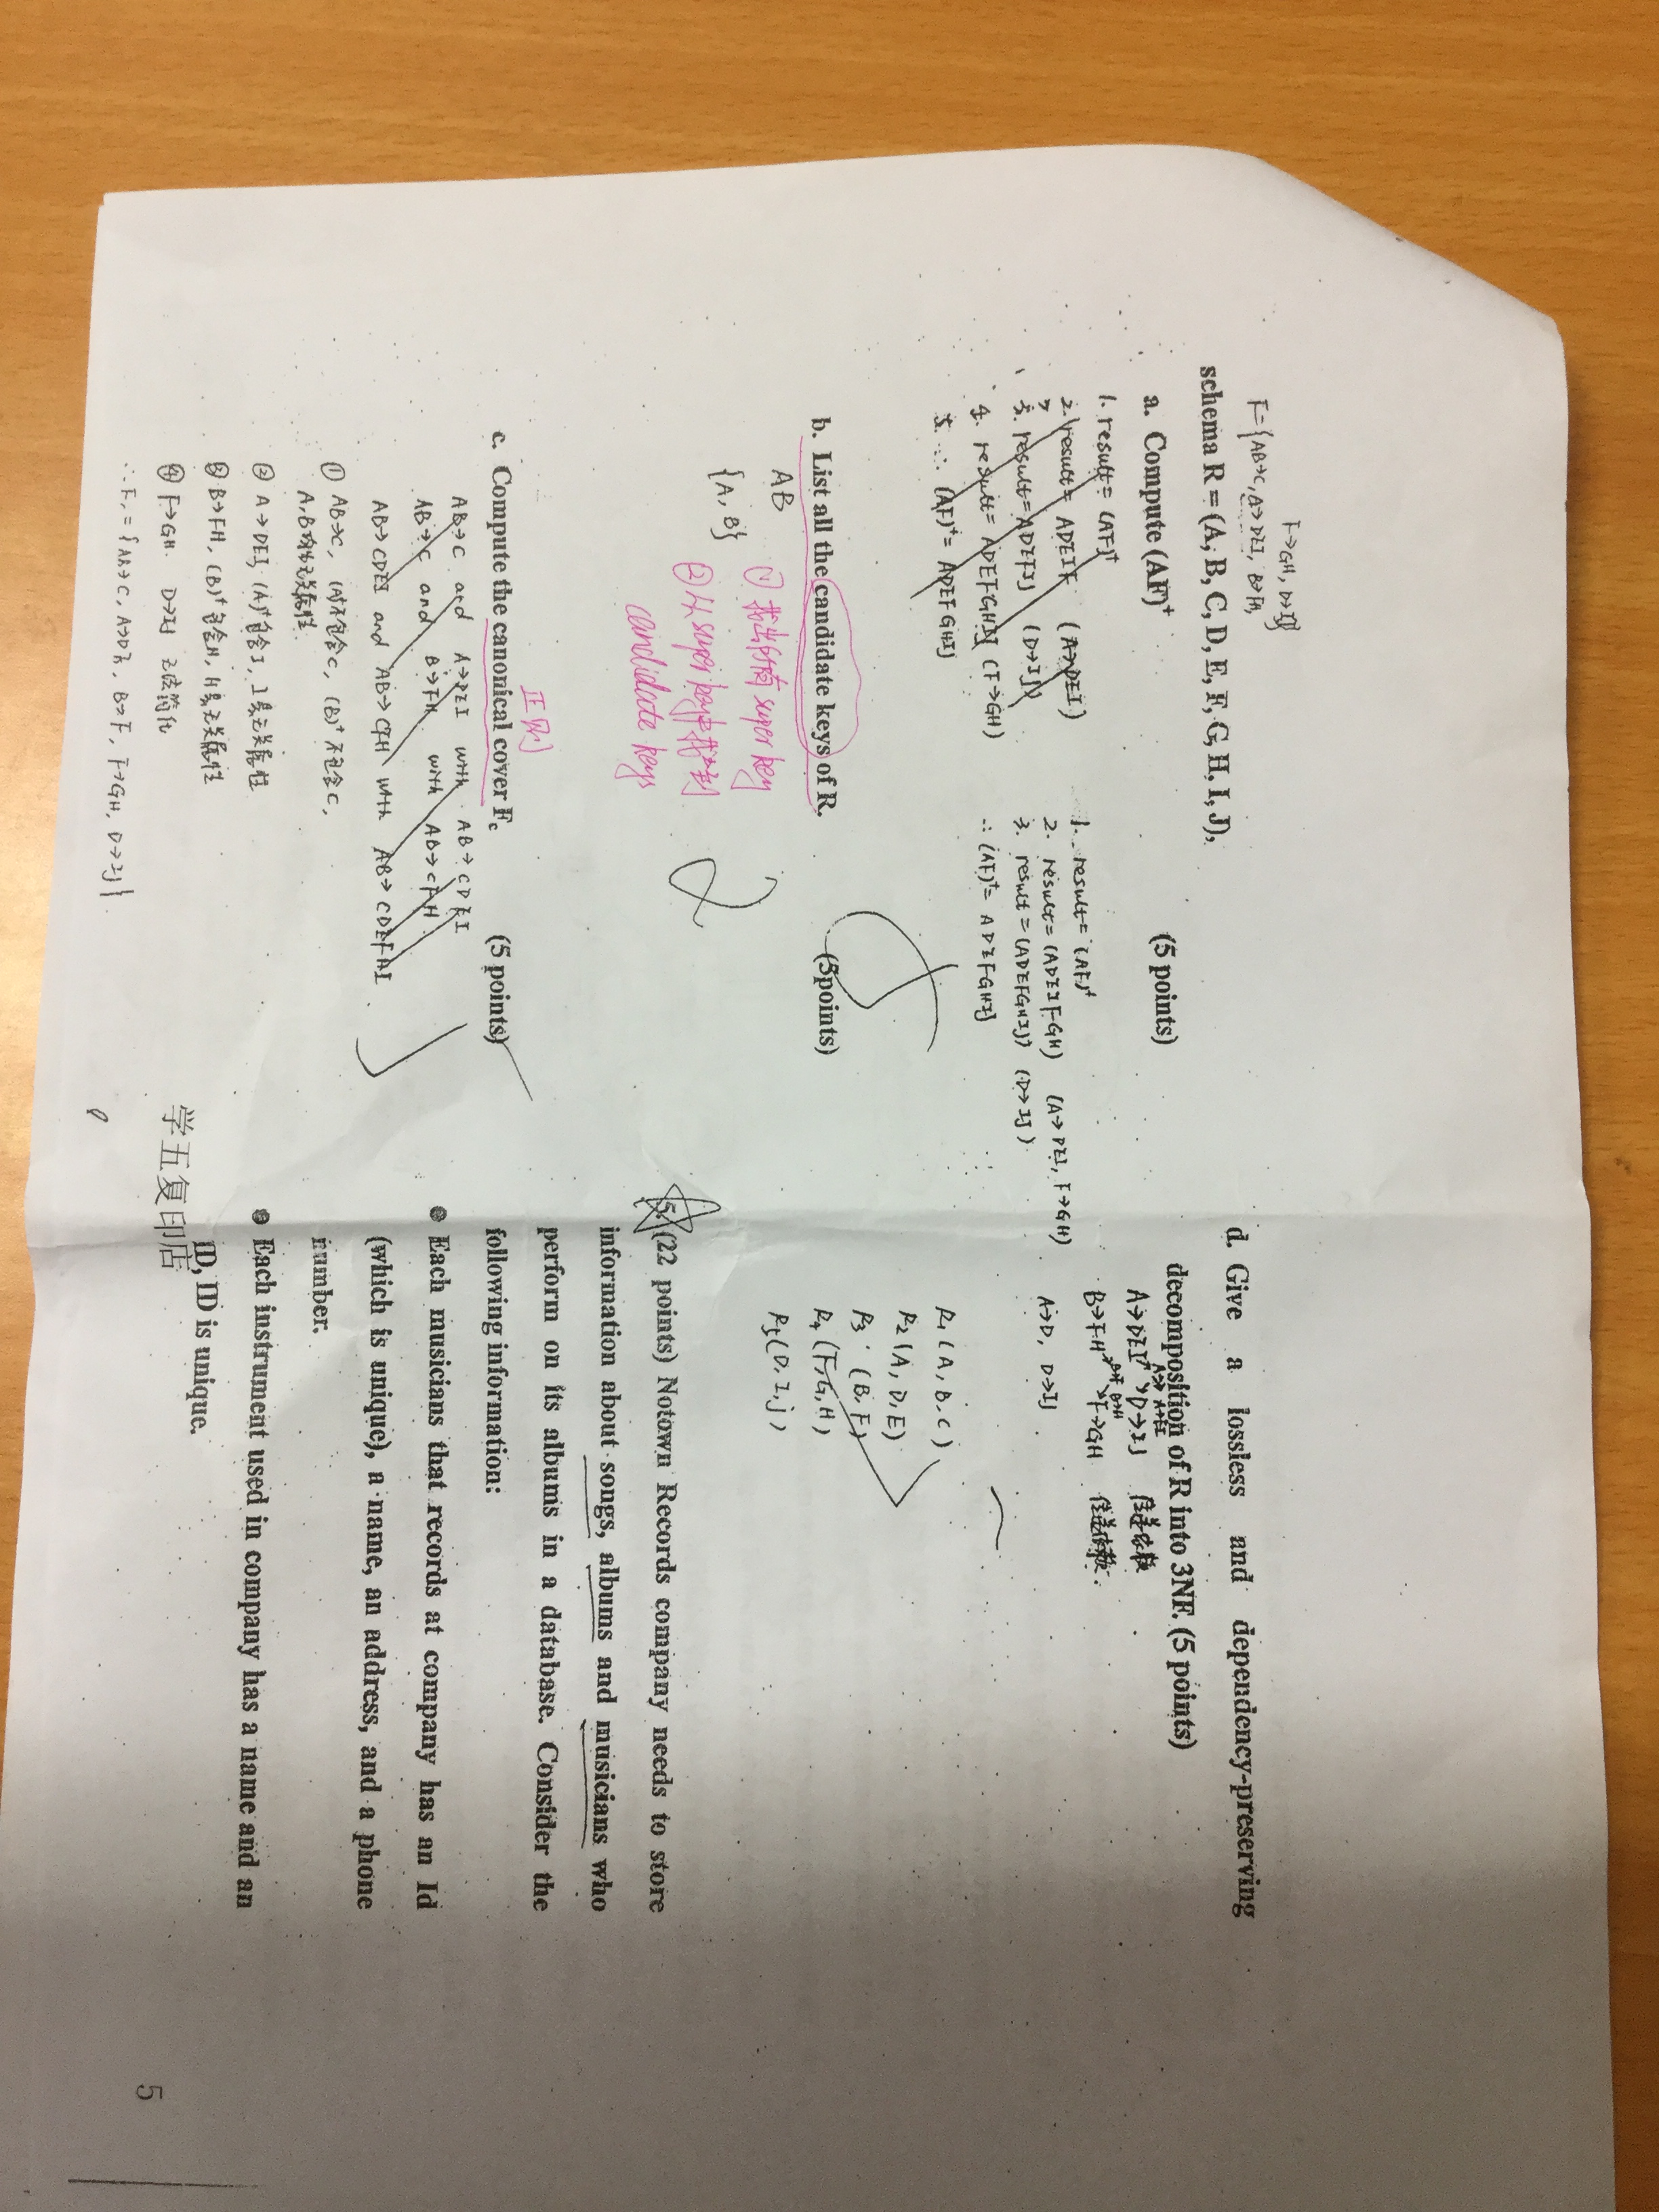 F→GH, D→IJ}
F={AB→C, A→DEI, B→FH,
schema R = (A, B, C, D, E, F, G, H, I, J),
a. Compute (AF)⁺ (5 points)
1. result= (AF)⁺
2. result= ADEIF (A→DEI)
3. result= ADEFIJ (D→IJ)
4. result= ADEFGHIJ (F→GH)
5. ∴ (AF)⁺= ADEFGHIJ
1. result= (AF)⁺
2. result= (ADEIFGH) (A→DEI, F→GH)
3. result= (ADEFGHIJ) (D→IJ)
∴ (AF)⁺= ADEFGHIJ
b. List all the candidate keys of R. (5points)
AB
{A, B}
① 找出所有 super key
② 从 super key中找到
candidate keys
2
正则
c. Compute the canonical cover Fc (5 points)
AB→C and A→DEI with AB→CDEI
AB→C and B→FH with AB→CFH
AB→CDEI and AB→CFH with AB→CDEFHI
① AB→C, (A)⁺不包含C, (B)⁺不包含C,
A, B均为无关属性
② A→DEI, (A)⁺包含I, I是无关属性
③ B→FH, (B)⁺包含H, H是无关属性
④ F→GH. D→IJ 无法简化
∴ Fc = {AB→C, A→DE, B→F, F→GH, D→IJ}
d. Give a lossless and dependency-preserving
decomposition of R into 3NF. (5 points)
A→D A→EI
A→DEI D→IJ 传递依赖
B→F B→H
B→FH F→GH 传递依赖.
A→D, D→IJ
R1 (A, B, C)
R2 (A, D, E)
R3 (B, F)
R4 (F, G, H)
R5 (D, I, j)
5. (22 points) Notown Records company needs to store
information about songs, albums and musicians who
perform on its albums in a database. Consider the
following information:
● Each musicians that records at company has an Id
(which is unique), a name, an address, and a phone
number.
● Each instrument used in company has a name and an
ID, ID is unique.
学五复印店
5